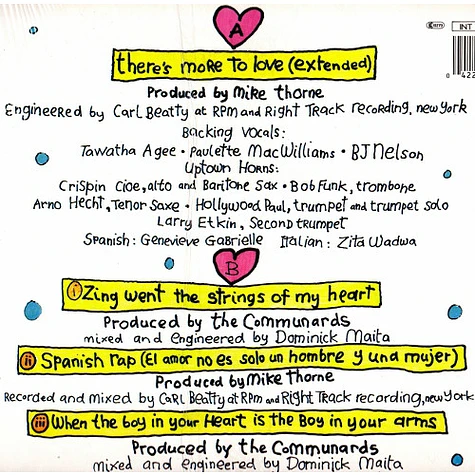 A
INT
there's more to love (extended)
Produced by Mike Thorne
Engineered by Carl Beatty at RPM and Right Track recording, new york
Backing Vocals:
Tawatha Agee • Paulette MacWilliams • BJ Nelson
Uptown Horns:
Crispin Cioe, alto and Baritone Sax • Bob Funk, trombone
Arno Hecht, Tenor Saxe • Hollywood Paul, trumpet and trumpet solo
Larry Etkin, Second trumpet
Spanish: Genevieve Gabrielle Italian: Zita Wadwa
B
i Zing went the strings of my heart
Produced by the Communards
mixed and engineered by Dominick Maita
ii Spanish rap (El amor no es solo un hombre y una mujer)
Produced by Mike Thorne
Recorded and mixed by Carl Beatty at RPM and Right Track recording, new york
iii When the boy in your Heart is the Boy in your arms
Produced by the Communards
mixed and engineered by Dominick Maita